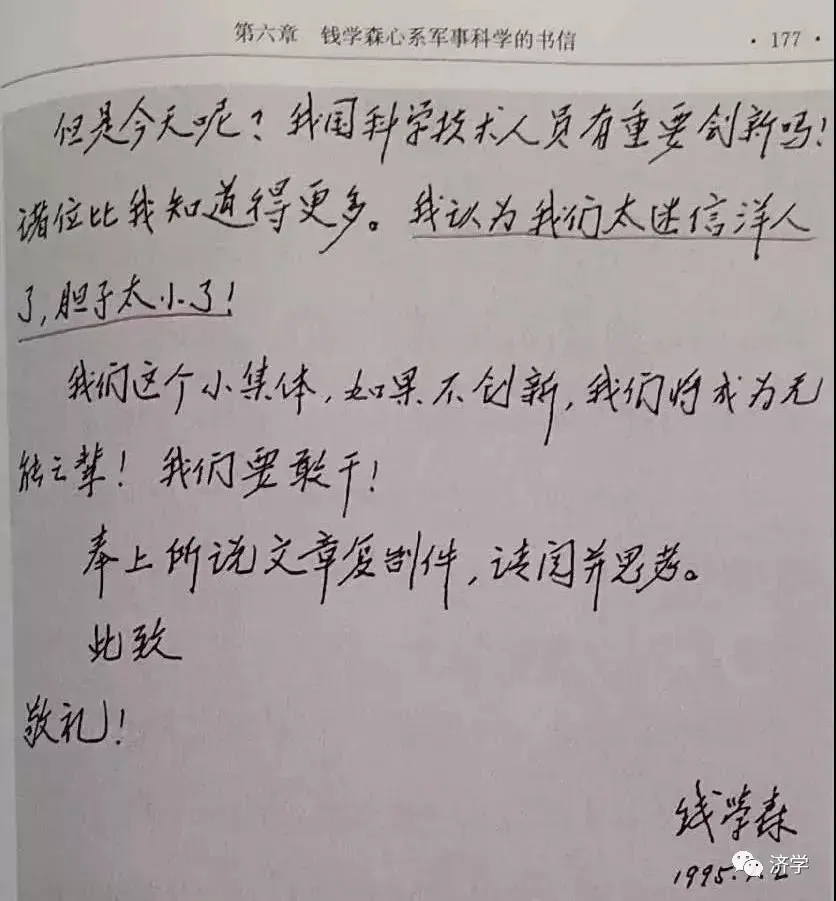 第六章 钱学森心系军事科学的书信 · 177 ·
但是今天呢？我国科学技术人员有重要创新吗！
诸位比我知道得更多。我认为我们太迷信洋人
了，胆子太小了！
我们这个小集体，如果不创新，我们将成为无
能之辈！我们要敢干！
奉上所说文章复制件，请阅并思考。
此致
敬礼！
钱学森
1995.1.2
济学